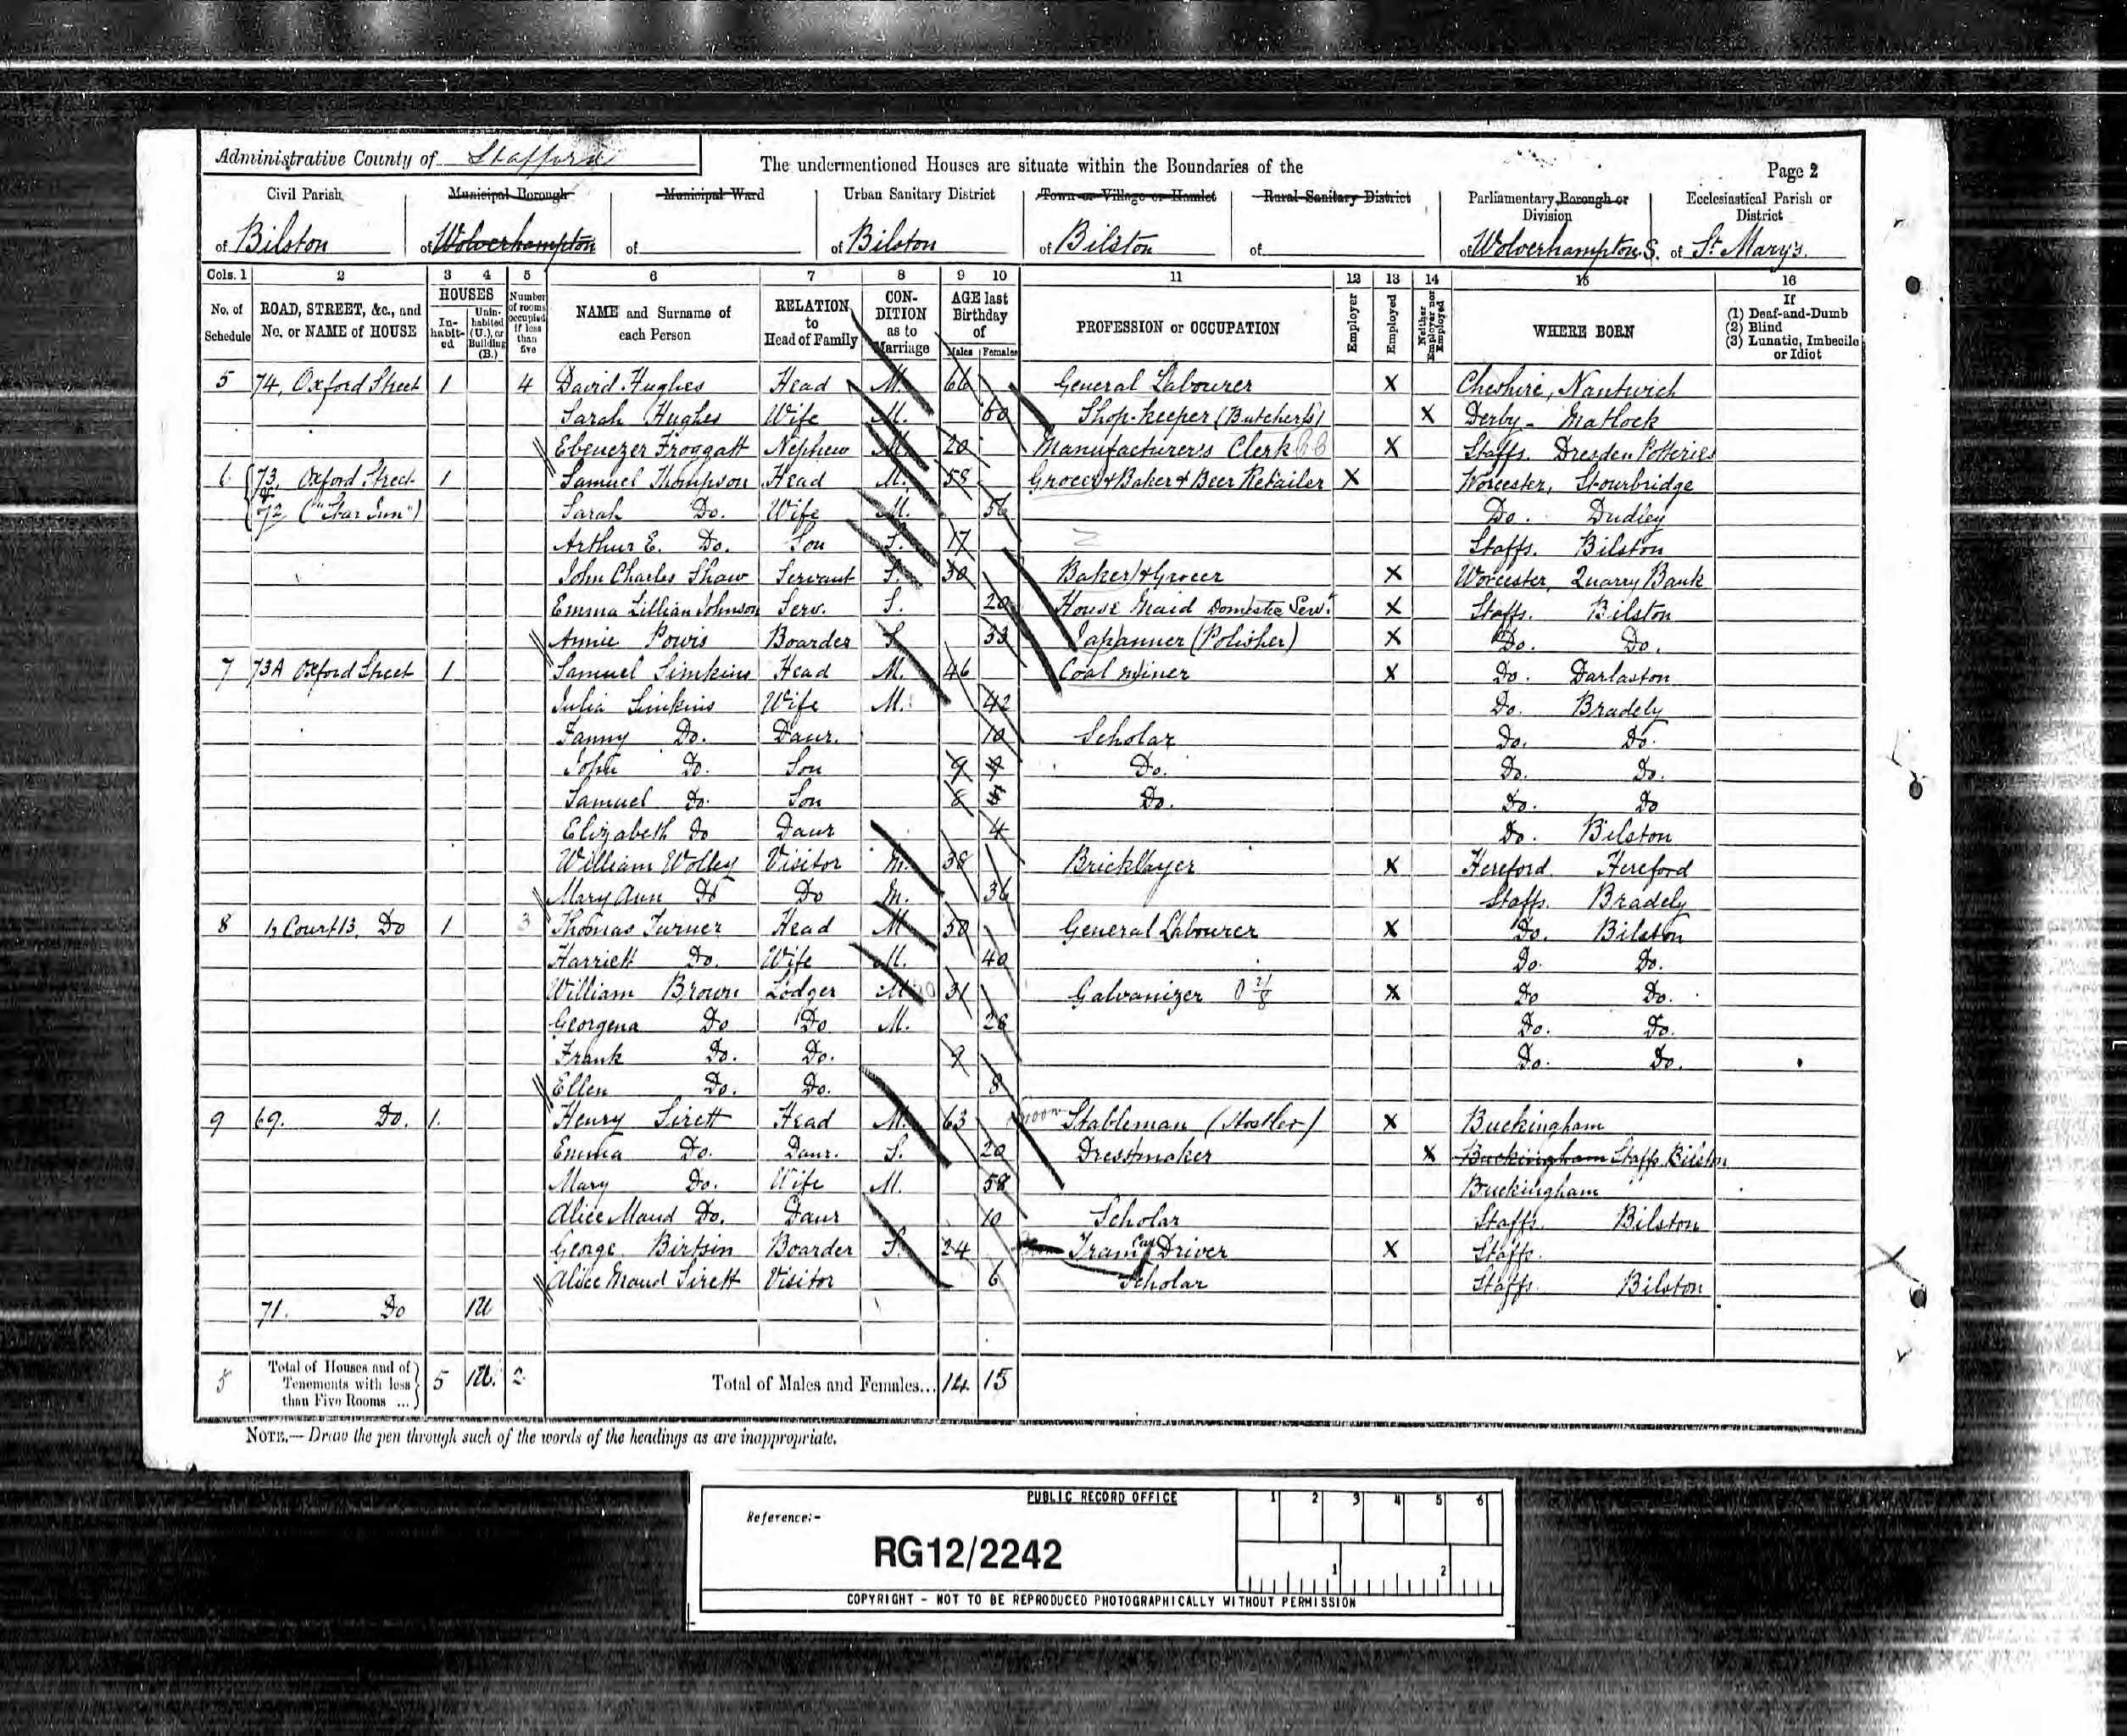 Administrative County of Stafford
The undermentioned Houses are situate within the Boundaries of the
Page 2
Civil Parish Municipal Borough Municipal Ward Urban Sanitary District Town or Village or Hamlet Rural Sanitary District Parliamentary Borough or Division Ecclesiastical Parish or District
of Bilston of Wolverhampton of of Bilston of Bilston of of Wolverhampton S. of St. Mary's.
Cols. 1 2 3 4 5 6 7 8 9 10 11 12 13 14 15 16
No. of Schedule ROAD, STREET, &c., and No. or NAME of HOUSE HOUSES Inhabited Uninhabited (U.), or Building (B.) Number of rooms occupied if less than five NAME and Surname of each Person RELATION to Head of Family CONDITION as to Marriage AGE last Birthday of Males Females PROFESSION or OCCUPATION Employer Employed Neither Employer nor Employed WHERE BORN If (1) Deaf-and-Dumb (2) Blind (3) Lunatic, Imbecile or Idiot
5 74, Oxford Street 1 4 David Hughes Head M. 66 General Labourer X Cheshire, Nantwich
Sarah Hughes Wife M. 60 Shop-keeper (Butcher's) X Derby - Matlock
Ebenezer Froggatt Nephew M. 20 Manufacturer's Clerk X Staffs. Dresden Potteries
6 73, Oxford Street 1 Samuel Thompson Head M. 58 Grocer & Baker & Beer Retailer X Worcester, Stourbridge
& 72 ("Star Inn") Sarah Do. Wife M. 56 Do. Dudley
Arthur E. Do. Son S. 17 Staffs. Bilston
John Charles Shaw Servant S. 30 Baker & Grocer X Worcester, Quarry Bank
Emma Lillian Johnson Serv. S. 20 House Maid Domestic Serv. X Staffs. Bilston
Annie Powis Boarder S 33 Japanner (Polisher) X Do. Do.
7 73A Oxford Street 1 Samuel Simkins Head M. 46 Coal Miner X Do. Darlaston
Julia Simkins Wife M. 42 Do. Bradely
Fanny Do. Daur. 10 Scholar Do. Do.
John Do. Son 9 Do. Do. Do.
Samuel Do. Son 8 Do. Do. Do
Elizabeth Do Daur 4 Do. Bilston
William Wolley Visitor M. 38 Bricklayer X Hereford Hereford
Mary Ann Do Do M. 36 Staffs. Bradely
8 Court 13, Do 1 3 Thomas Turner Head M 50 General Labourer X Do. Bilston
Harriett Do. Wife M. 40 Do. Do.
William Brown Lodger M 31 Galvanizer X Do Do.
Georgena Do Do M. 26 Do. Do.
Frank Do. Do. 9 Do. Do.
Ellen Do. Do. 8
9 69. Do. 1. Henry Sirett Head M. 63 Stableman (Hostler) X Buckingham
Emma Do. Daur. S. 20 Dressmaker X Buckingham Staffs. Bilston
Mary Do. Wife M. 58 Buckingham
Alice Maud Do. Daur 10 Scholar Staffs. Bilston
George Birtsin Boarder S. 24 Tram Car Driver X Staffs.
Alice Maud Sirett Visitor 6 Scholar Staffs. Bilston
71. Do 1U
5 Total of Houses and of Tenements with less than Five Rooms ... 5 1U. 2 Total of Males and Females... 14 15
NOTE.— Draw the pen through such of the words of the headings as are inappropriate.
PUBLIC RECORD OFFICE
1 2 3 4 5 6
Reference:-
RG12/2242
1 2
COPYRIGHT - NOT TO BE REPRODUCED PHOTOGRAPHICALLY WITHOUT PERMISSION